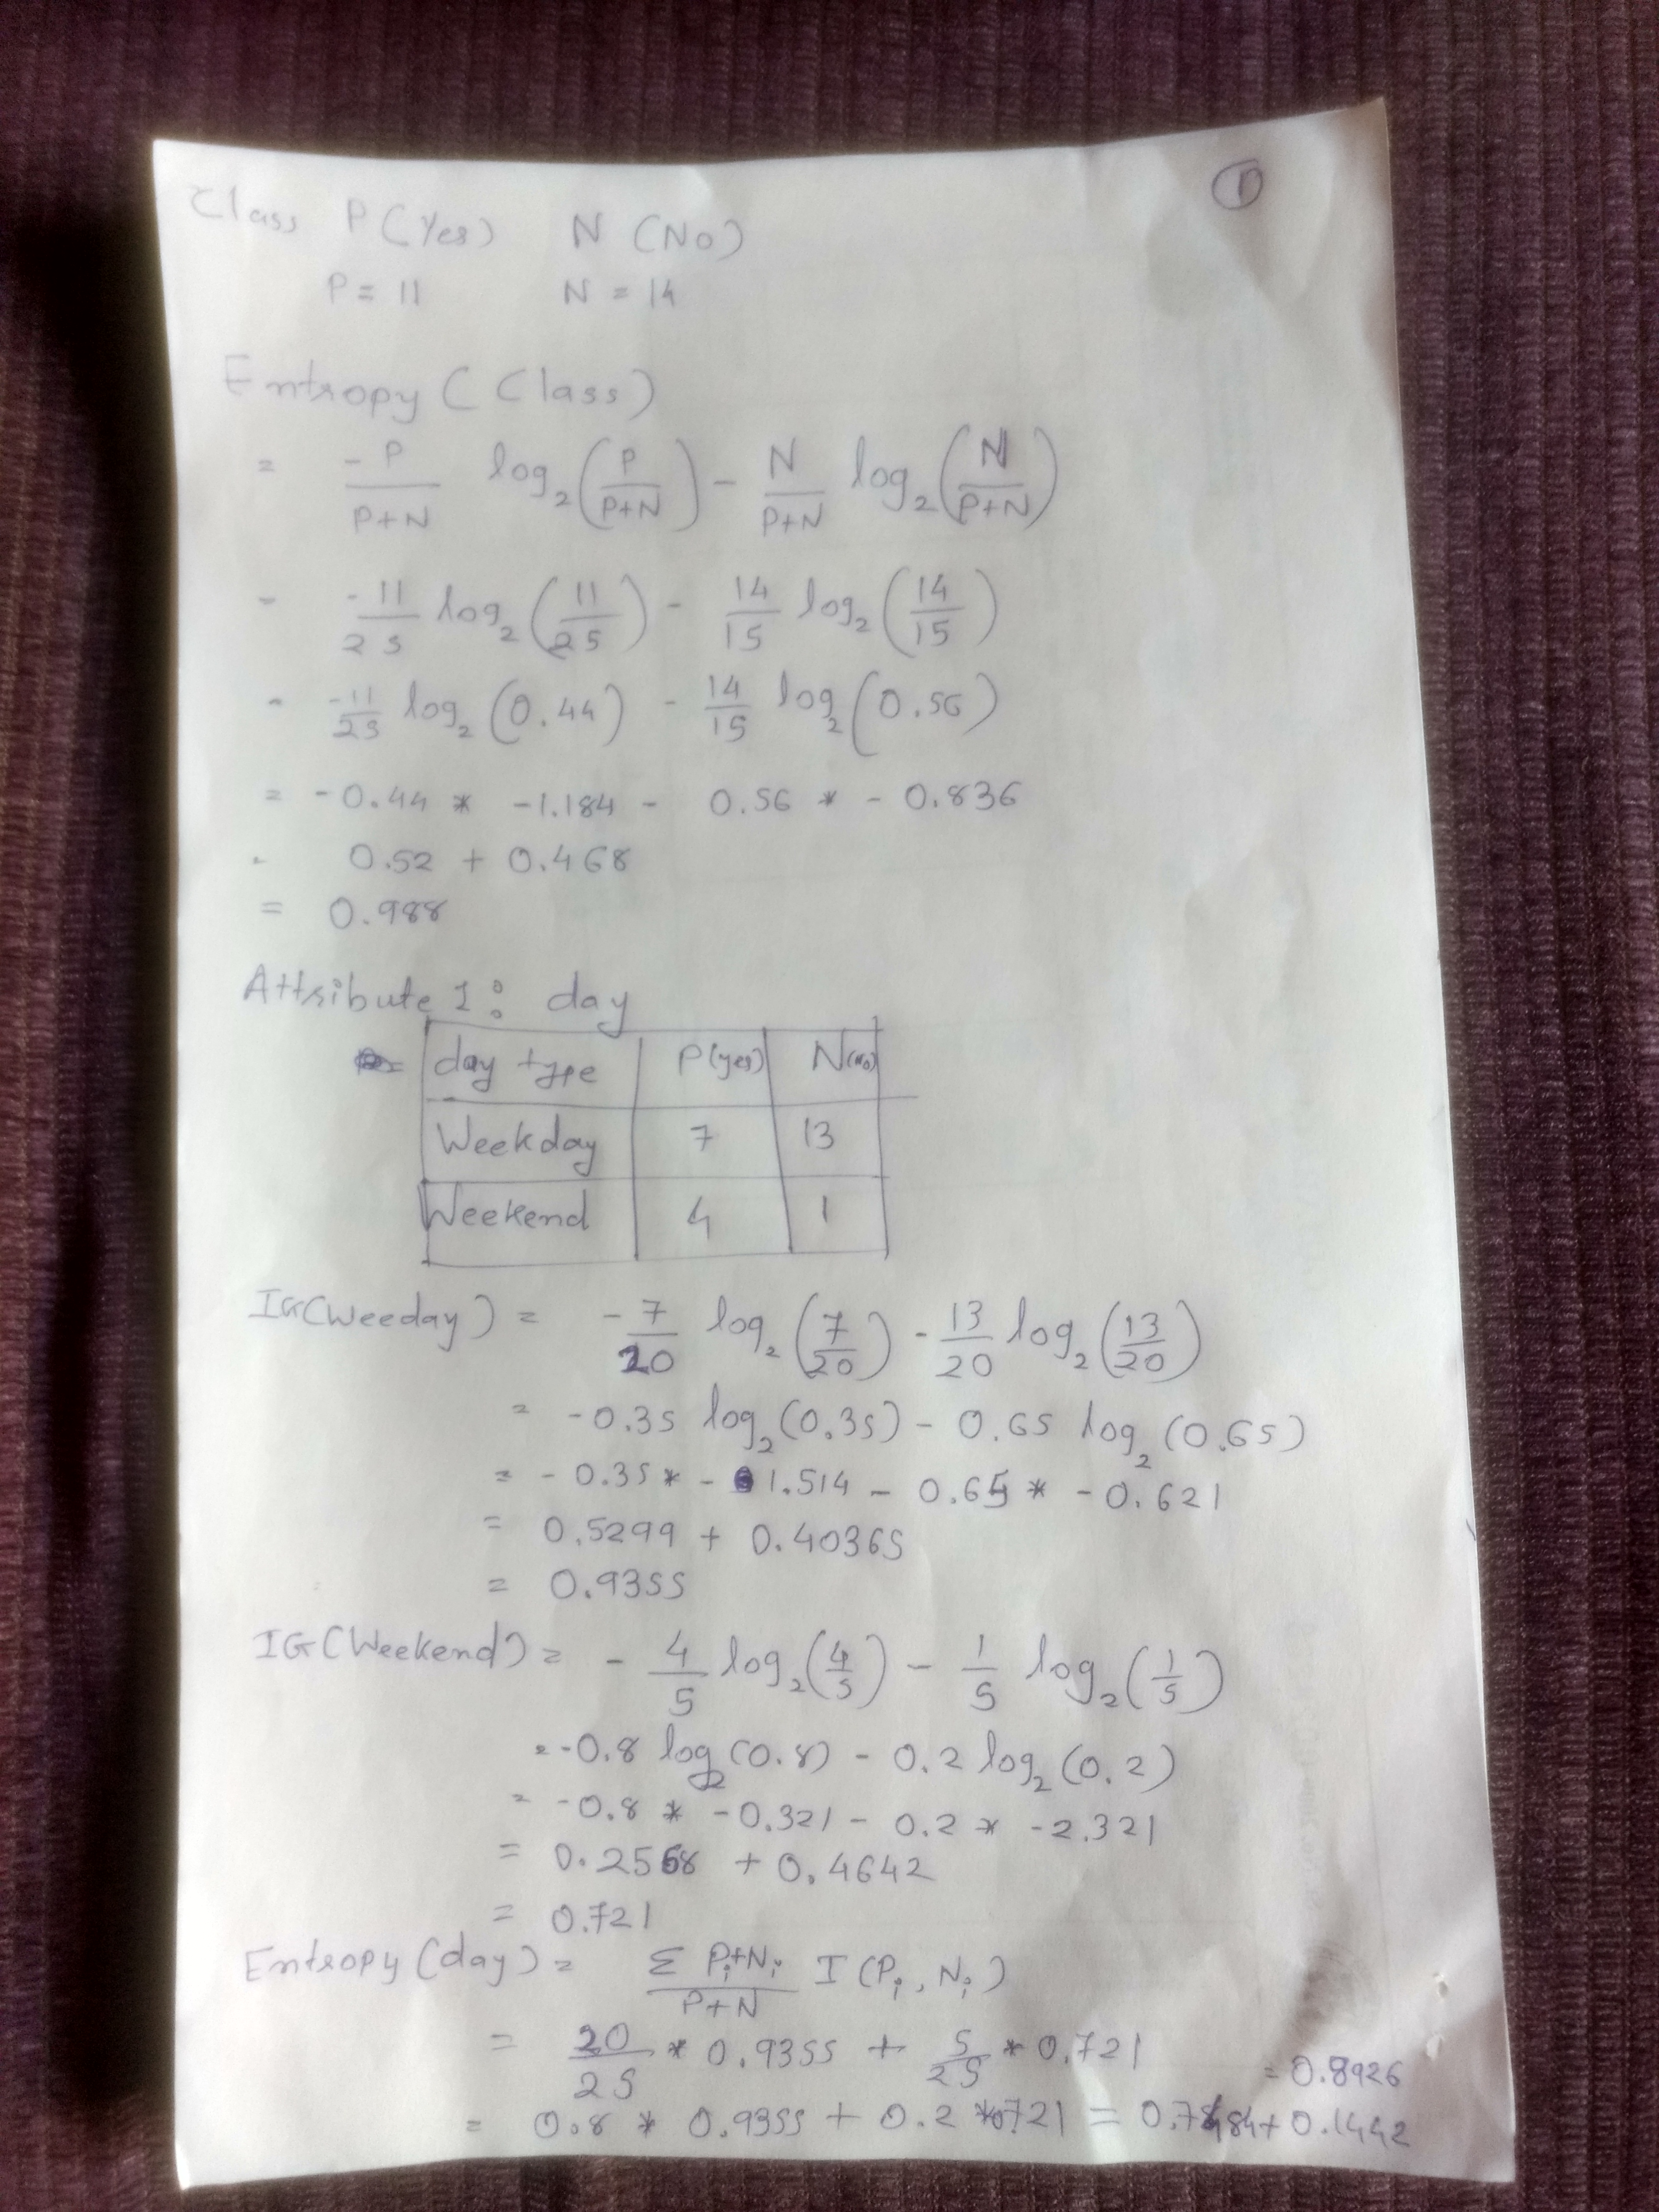 ①
Class P (Yes) N (No)
P = 11 N = 14
Entropy (Class)
= -P/P+N log₂(P/P+N) - N/P+N log₂(N/P+N)
= -11/25 log₂(11/25) - 14/15 log₂(14/15)
= -11/25 log₂(0.44) - 14/15 log₂(0.56)
= -0.44 * -1.184 - 0.56 * -0.836
= 0.52 + 0.468
= 0.988
Attribute 1: day
day type P(yes) N(No)
Weekday 7 13
Weekend 4 1
IG(Weeday) = -7/20 log₂(7/20) - 13/20 log₂(13/20)
= -0.35 log₂(0.35) - 0.65 log₂(0.65)
= -0.35 * -1.514 - 0.65 * -0.621
= 0.5299 + 0.40365
= 0.9355
IG(Weekend) = -4/5 log₂(4/5) - 1/5 log₂(1/5)
= -0.8 log₂(0.8) - 0.2 log₂(0.2)
= -0.8 * -0.321 - 0.2 * -2.321
= 0.2568 + 0.4642
= 0.721
Entropy (day) = Σ Pi+Ni/P+N I(Pi, Ni)
= 20/25 * 0.9355 + 5/25 * 0.721
= 0.8 * 0.9355 + 0.2 * 0.721 = 0.7484 + 0.1442
= 0.8926